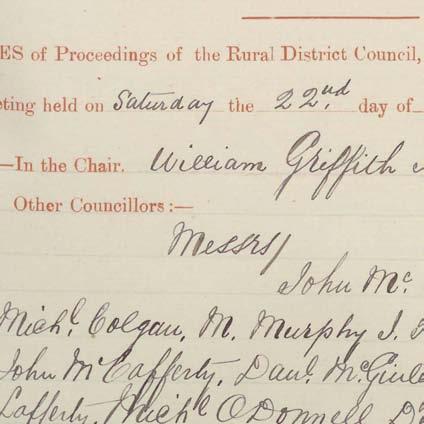 ES of Proceedings of the Rural District Council,
eting held on Saturday the 22nd. day of
—In the Chair. William Griffith
Other Councillors:—
Messrs/
John Mc.
Michl. Colgan, M. Murphy J.
John McCafferty, Danl. McGinle
Lafferty, Michl O'Donnell D